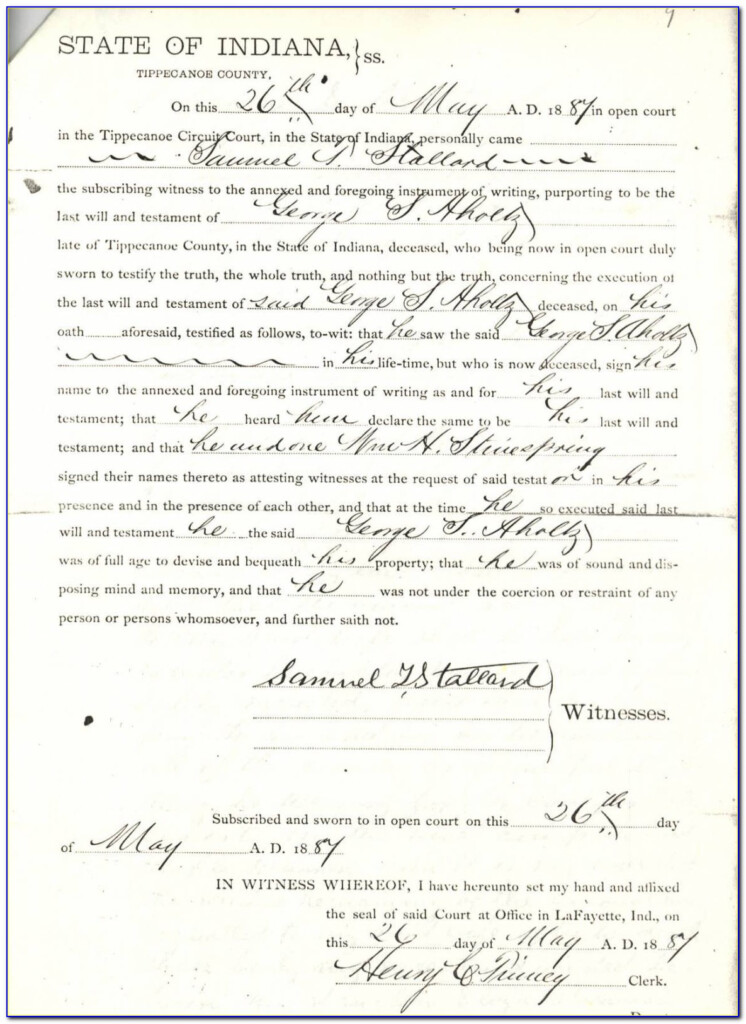 STATE OF INDIANA, } SS.
TIPPECANOE COUNTY,
On this 26th day of May A. D. 1887 in open court
in the Tippecanoe Circuit Court, in the State of Indiana, personally came
Samuel T. Stallard
the subscribing witness to the annexed and foregoing instrument of writing, purporting to be the
last will and testament of George S. Aholtz
late of Tippecanoe County, in the State of Indiana, deceased, who being now in open court duly
sworn to testify the truth, the whole truth, and nothing but the truth, concerning the execution of
the last will and testament of said George S. Aholtz deceased, on his
oath aforesaid, testified as follows, to-wit: that he saw the said George S. Aholtz
in his life-time, but who is now deceased, sign his
name to the annexed and foregoing instrument of writing as and for his last will and
testament; that he heard him declare the same to be his last will and
testament; and that he and one Wm H. Stinespring
signed their names thereto as attesting witnesses at the request of said testator in his
presence and in the presence of each other, and that at the time he so executed said last
will and testament he the said George S. Aholtz
was of full age to devise and bequeath his property; that he was of sound and dis-
posing mind and memory, and that he was not under the coercion or restraint of any
person or persons whomsoever, and further saith not.
Samuel T Stallard
Witnesses.
Subscribed and sworn to in open court on this 26th day
of May A. D. 1887
IN WITNESS WHEREOF, I have hereunto set my hand and affixed
the seal of said Court at Office in LaFayette, Ind., on
this 26 day of May A. D. 1887
Henry C Pinney Clerk.